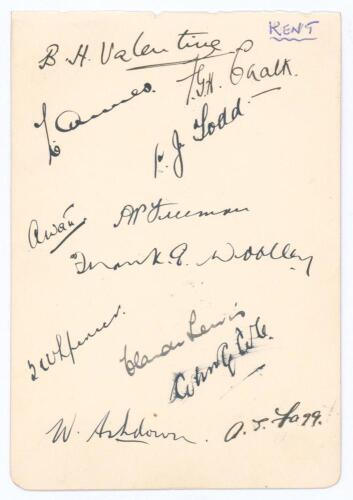 KENT
B. H. Valentine
F.G.H. Chalk.
L E G Ames.
L. J. Todd.
A Watt.
AP Freeman
Frank. E. Woolley
T W Spencer.
Claude Lewis
W. Ashdown.
A. E. Fagg.